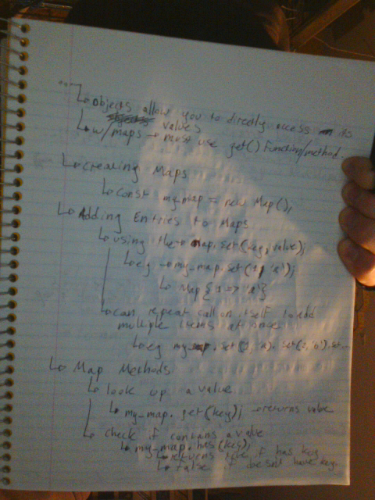 ↳ objects allow you to directly access its
values
↳ w/maps → must use get() function/method.
↳ Creating Maps
↳ const my_map = new Map();
↳ Adding Entries to Maps
↳ using the map.set(key, value);
↳ eg → my_map.set(1, 'a');
↳ Map {1 => 'a'}
↳ can repeat call on itself to add
multiple items at once
↳ eg my_map.set(1, 'a).set(2, 'b')
↳ Map Methods
↳ look up a value
↳ my_map.get(key); → returns value
↳ check if contains a value
↳ my_map.has(key);
↳ returns true if has key
↳ false if doesnt have key